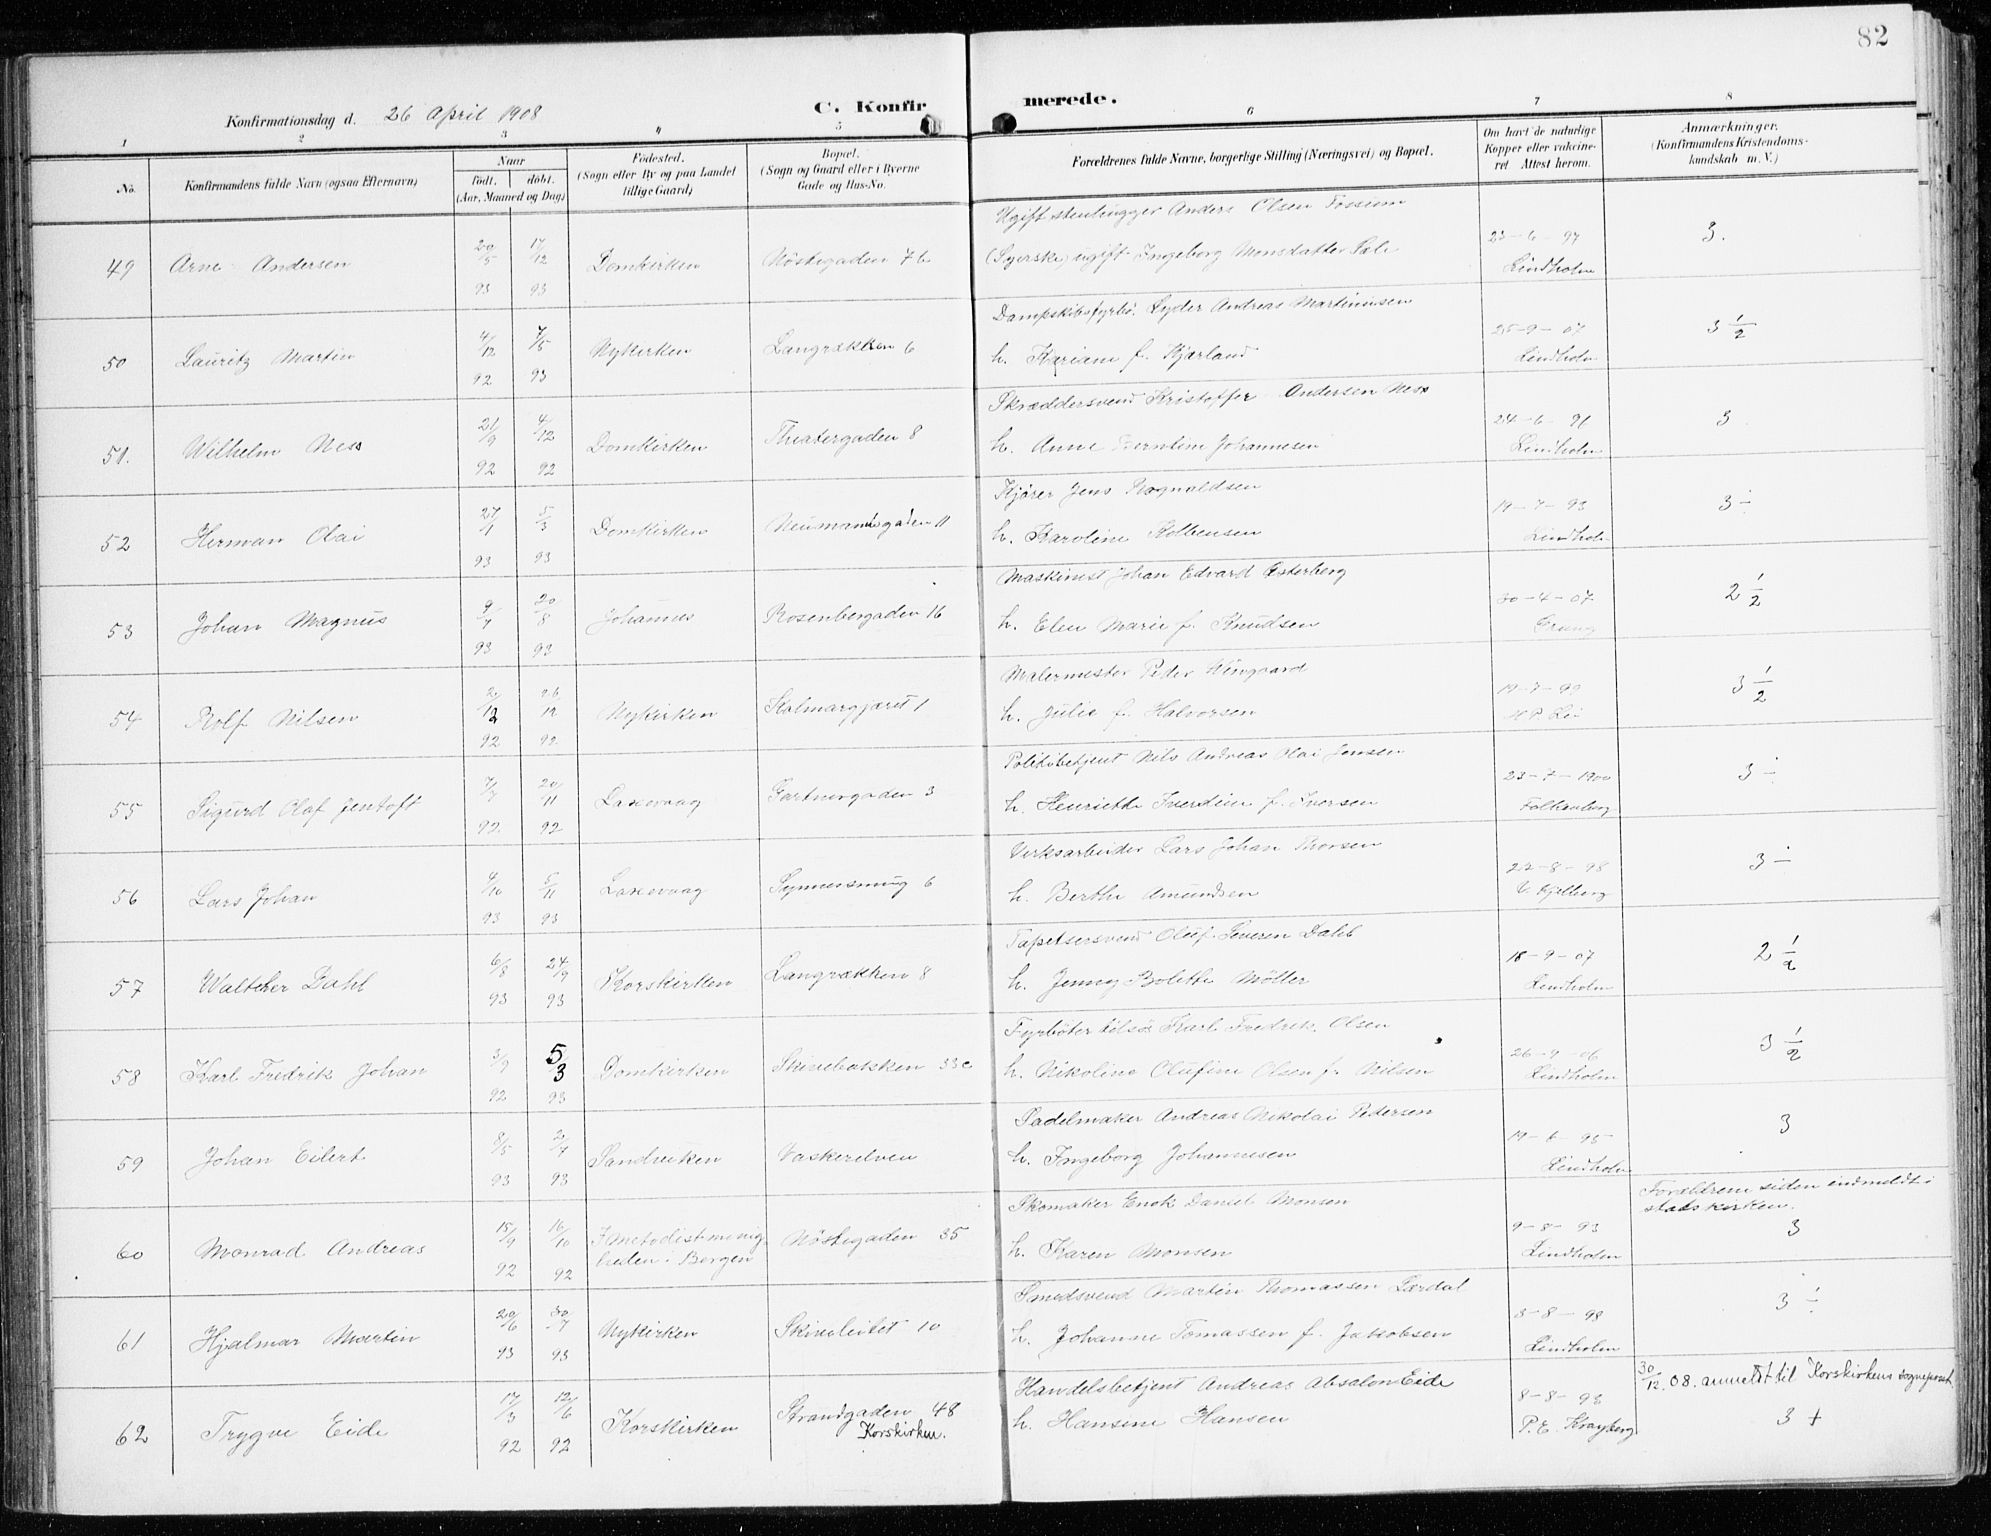 82
C. Konfirmerede.
Konfirmationsdag d. 26 April 1908
1 2 3 4 5 6 7 8
No.
Konfirmandens fulde Navn (ogsaa Efternavn)
Naar
født. døbt.
(Aar, Maaned og Dag)
Fødested.
(Sogn eller By og paa Landet
tillige Gaard)
Bopæl.
(Sogn og Gaard eller i Byerne
Gade og Hus-No.
Forældrenes fulde Navne, borgerlige Stilling (Næringsvei) og Bopæl.
Om havt de naturlige
Kopper eller vakcine-
ret Attest herom.
Anmærkninger.
(Konfirmandens Kristendoms-
kundskab m. V.)
Ugift stenhugger Anders Olsen Fossum
49 Arne Andersen 20/5 93 17/12 93 Domkirken Nøstegaden 76
(Syerske) ugift Ingeborg Monsdatter Sæle
23-6-97 Lindholm 3.
Dampskibsfyrbø. Lyder Andreas Martinusen
50 Lauritz Martin 4/12 92 7/5 93 Nykirken Langrækken 6
h. Mariane f. Kjærland
25-9-07 Lindholm 3 1/2
Skræddersvend Kristoffer Andersen Ness
51. Wilhelm Ness 21/9 92 4/12 92 Domkirken Theatergaden 8
h. Anne Berntine Johannesen
24-6-96 Lindholm 3
Kjører Jens Ragnaldsen
52 Herman Olai 27/1 93 5/3 93 Domkirken Neumannsgaden 11
h. Karoline Kolbensen
19-7-93 Lindholm 3 ÷
Maskinist Johan Edvard Østerberg
53 Johan Magnus 9/7 93 20/8 93 Johannes Rosenbergaden 16
h. Elen Marie f. Knudsen
30-4-07 2 1/2
Malermester Peder Wingaard
54 Rolf Nilsen 2/12 92 26/12 92 Nykirken Kalmargjæret 1
h. Julie f. Halvorsen
19-7-99 3 1/2
Politibetjent Nils Andreas Olai Jensen
55 Sigurd Olaf Jentoft 7/7 92 20/11 92 Laxevaag Gartnergaden 3
h. Henriette Iverdine f. Iversen
23-7-1900 Falkenberg 3 ÷
Verksarbeider Lars Johan Thorsen
56 Lars Johan 4/10 93 5/11 93 Laxevaag Synnesmug 6
h. Berthe Amundsen
22-8-98 Kjelberg 3 ÷
Tapetsersvend Oluf Severin Dahl
57 Walther Dahl 6/8 93 24/9 93 Korskirken Langrækken 8
h. Jenny Bolette Møller
18-9-07 Lindholm 2 1/2
Fyrbøter tilsøs Karl Fredrik Olsen
58 Karl Fredrik Johan 3/9 92 5/3 93 Domkirken Skivebakken 33c
h. Nikoline Olufine Olsen f. Nilsen
26-9-06 Lindholm 3 1/2
Sadelmaker Andreas Nikolai Pedersen
59 Johan Eilert 8/5 93 2/7 93 Sandviken Vaskerelven
h. Ingeborg Johannesen
19-6-95 Lindholm 3
Skomaker Enok Daniel Monsen
60 Monrad Andreas 15/9 92 16/10 92 I metodistmenig-
heden i Bergen Nøstegaden 35
h. Karen Monsen
9-8-93 Lindholm
Forældrene siden indmeldt i
statskirken.
3
Smedsvend Martin Thomassen Lærdal
61 Hjalmar Martin 20/6 93 30/7 93 Nykirken Skiveleitet 10
h. Johanne Tomassen f. Jakobsen
3-8-98 Lindholm 3 ÷
Handelsbetjent Andreas Absalon Eide
62 Trygve Eide 17/3 92 12/6 92 Korskirken Strandgaden 48
Korskirken.
h. Hansine Hansen
8-8-93 P. E. Krayberg
30/12.08. anmeldt til Korskirkens sogneprest
3 +